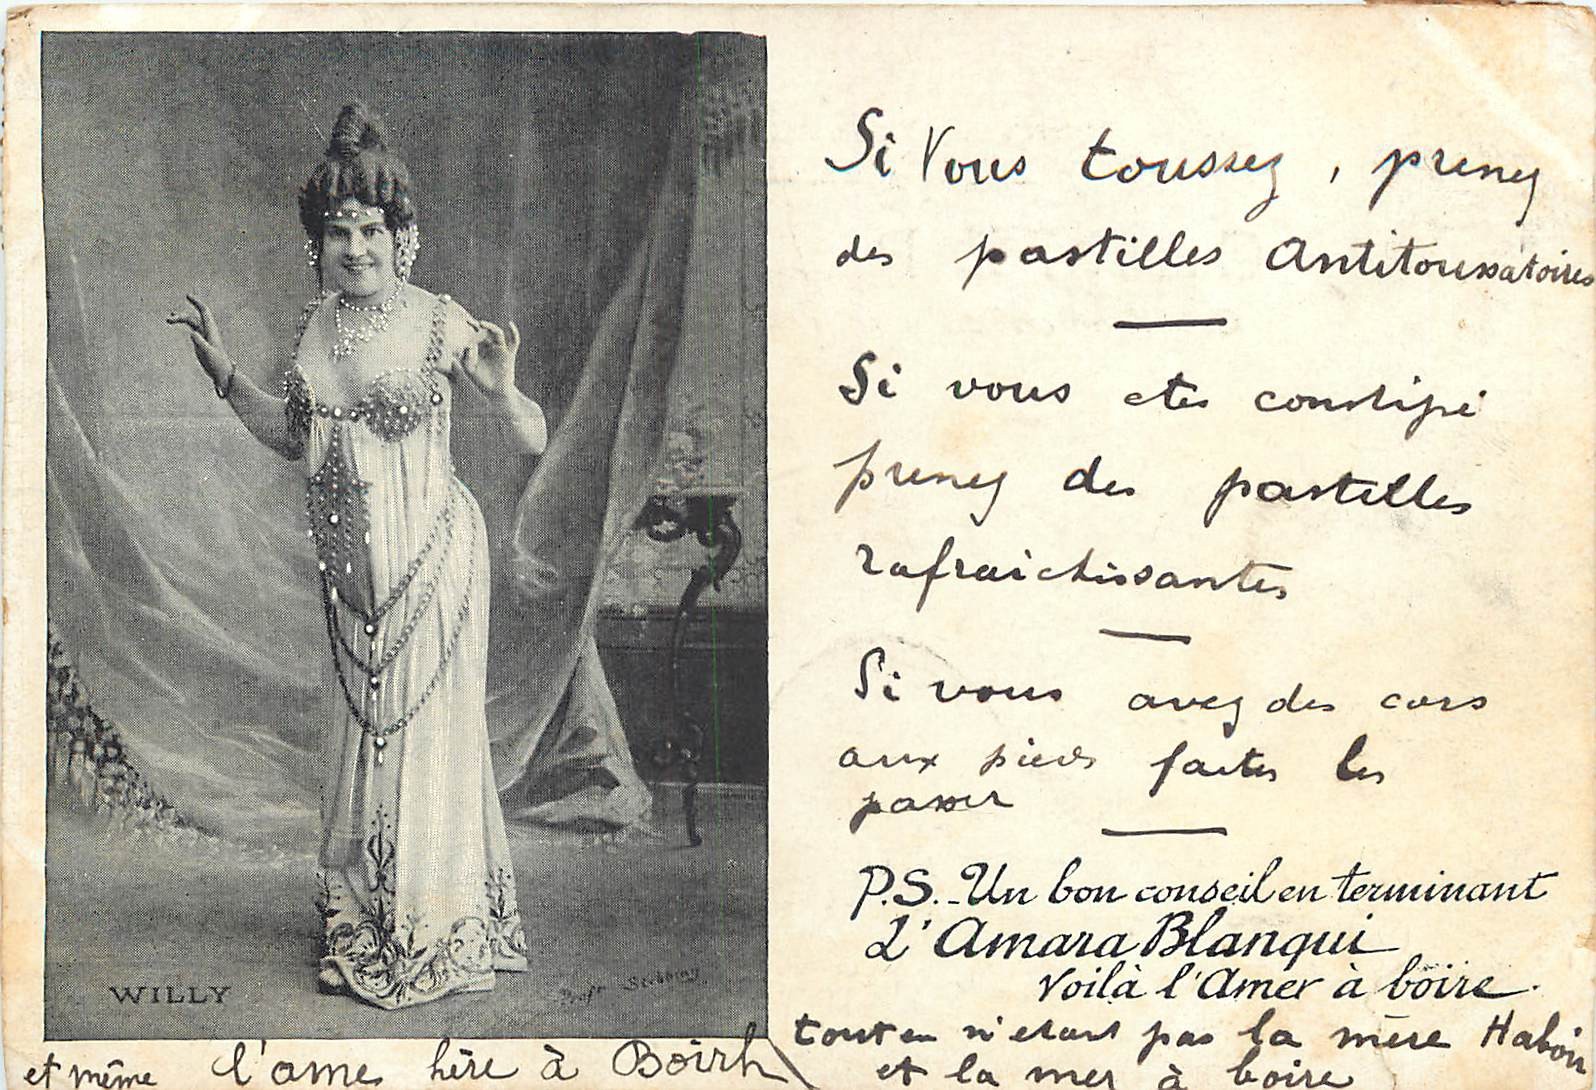 Si Vous toussez, prenez
des pastilles Antitoussatoires
Si vous etes constipé
prenez des pastilles
rafraichissantes
Si vous avez des cors
aux pieds faites les
passer
P.S. - Un bon conseil en terminant
L'Amara Blanqui
Voilà l'Amer à boire.
tout en n'etant pas la mère Haboir
et la mer à boire
et même l'ame hère à Boirh
WILLY